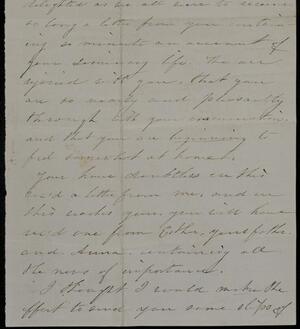 delighted as we all were to receive
so long a letter from you contain
ing so minute an account of
your seminary life. We are
rejoiced with you, that you
are so nearly and pleasantly
through with your examinations
and that you are beginning to
feel somewhat at home.
You have doubtless ere this
rec'd a letter from me, and ere
this reaches you, you will have
rec'd one from Esther, your father
and Anna, containing all
the news of importance.
I thought I would make the
effort to send you some